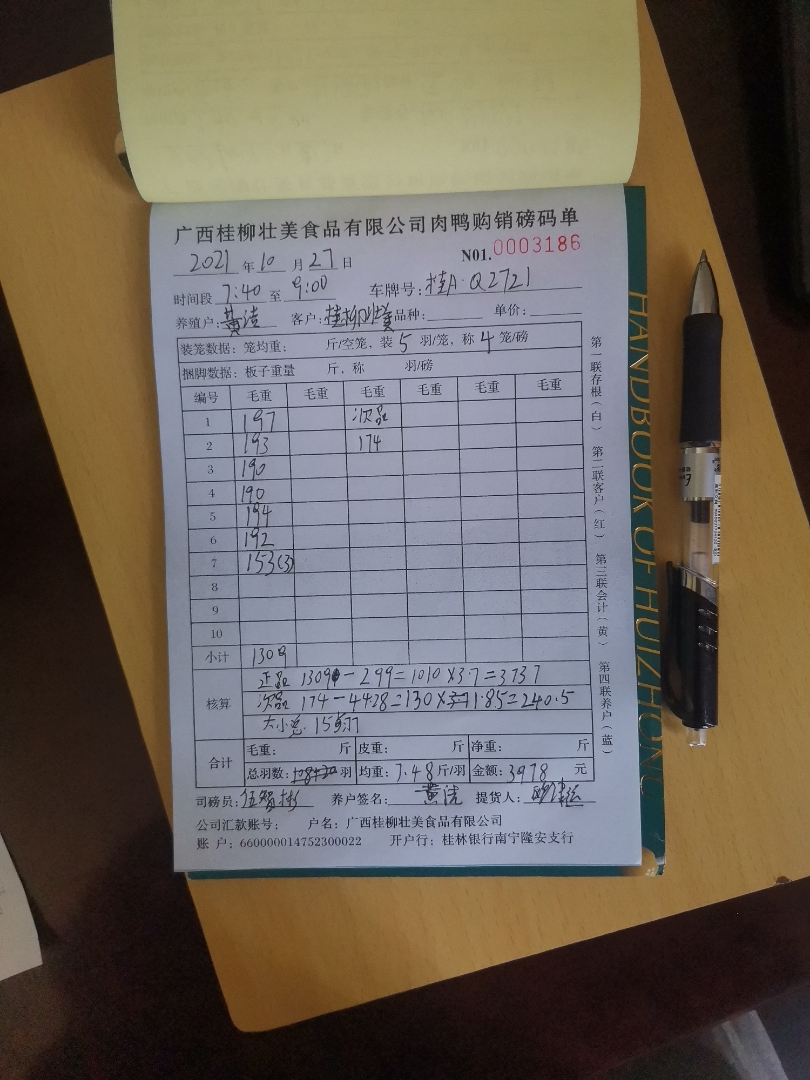 广西桂柳壮美食品有限公司肉鸭购销磅码单
2021年10月27日 N01.0003186
时间段 7:40 至 9:00 车牌号:桂A·Q2721
养殖户:黄洁 客户:桂柳壮美 品种: 单价:
装笼数据:笼均重: 斤/空笼、装5羽/笼,称4笼/磅
捆脚数据:板子重量 斤,称 羽/磅
编号 毛重 毛重 毛重 毛重 毛重 毛重
1 197 次品
2 193 174
3 190
4 190
5 194
6 192
7 153(3)
8
9
10
小计 1309
核算
正品 1309-299=1010×3.7=3737
次品 174-44=130×1.85=240.5
大小
合计
毛重: 斤 皮重: 斤 净重: 斤
总羽数: 羽 均重:7.48斤/羽 金额:3978 元
司磅员: 养户签名:黄洁 提货人:
公司汇款账号: 户名:广西桂柳壮美食品有限公司
账 户:660000014752300022 开户行:桂林银行南宁隆安支行
第一联存根(白) 第二联客户(红) 第三联会计(黄) 第四联养户(蓝)
HANDBOOK OF HUIZHONG